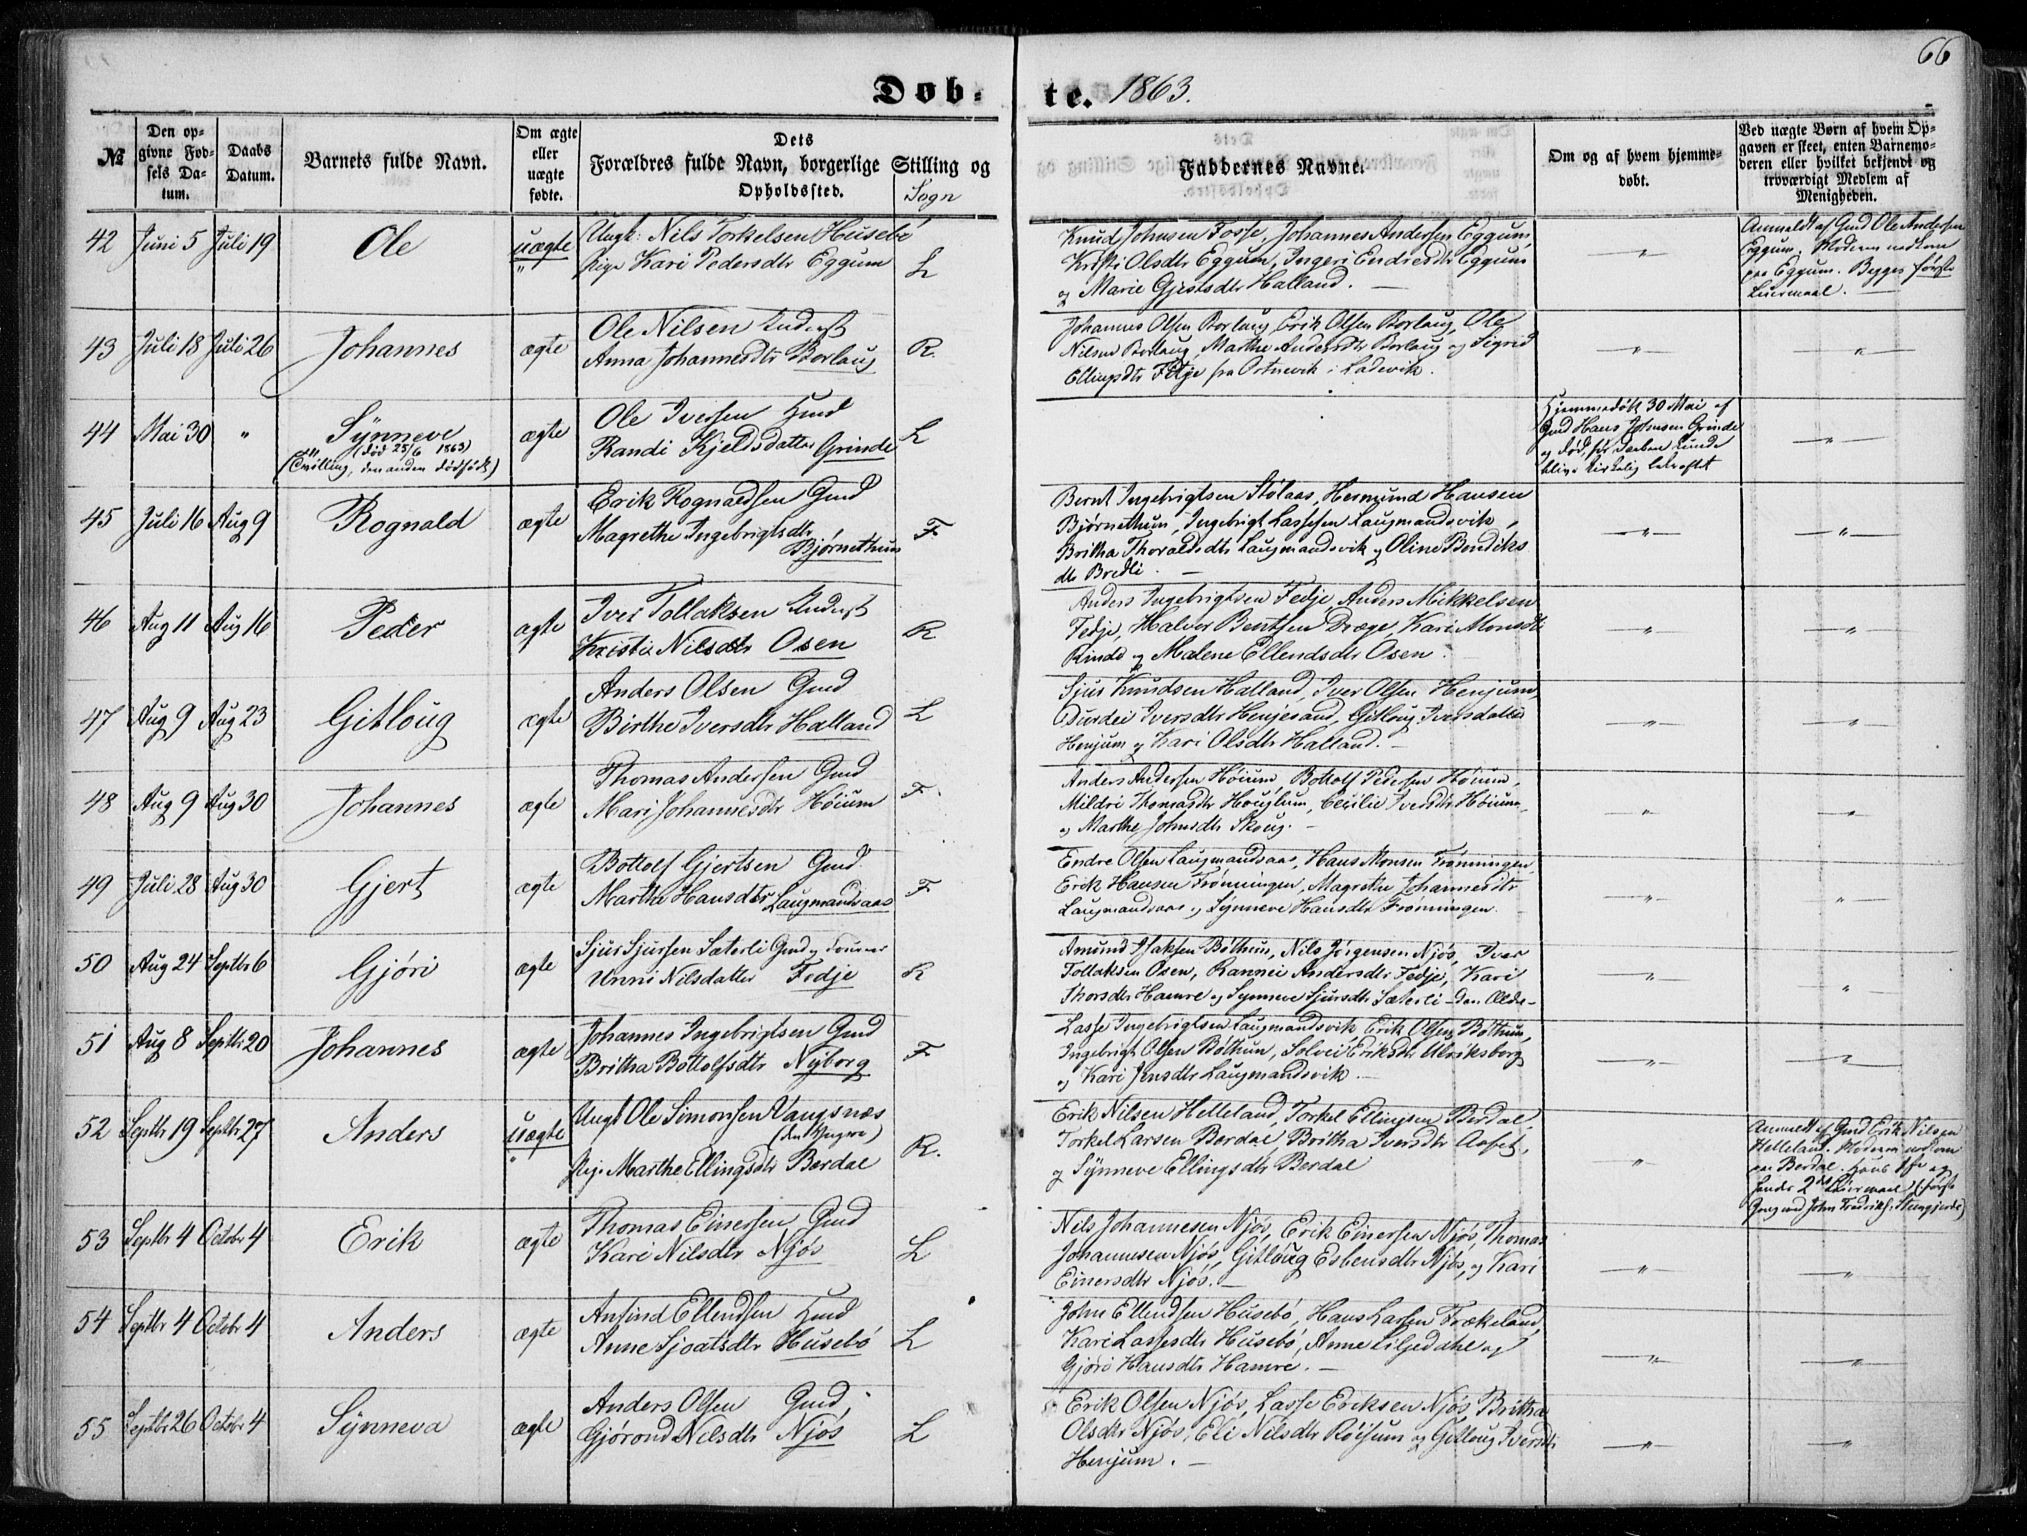 66
Døb-te. 1863.
№
Den opgivne Fødsels Datum.
Daabs Datum.
Barnets fulde Navn.
Om ægte eller uægte fødte.
Dets Forældres fulde Navn, borgerlige Stilling og Opholdssted.
Sogn
Faddernes Navne.
Om og af hvem hjemmedøbt.
Ved uægte Børn af hvem Opgaven er skeet, enten Barnemoderen eller hvilket bekjendt og troværdigt Medlem af Menigheden.
42 Juni 5 Juli 19 Ole uægte Ungk: Nils Torkelsen Husebö
Pige Kari Pedersdtr Eggum L
Knud Johnsen Fosse, Johannes Andersen Eggum,
Kristi Olsdtr Eggum, Ingeri Endresdtr Eggum
og Marie Gjestsdtr Halland. —
Anmeldt af Gmd Ole Andersen
Eggum. Moderen nedkom
paa Eggum. Begges første
Leiermaal.
43 Juli 18 Juli 26 Johannes ægte Ole Nilsen Inderst
Anna Johannesdtr Borlaug R.
Johannes Olsen Borlaug, Erik Olsen Borlaug, Ole
Nilsen Borlaug, Marthe Andersdtr Borlaug og Sigrid
Ellingsdtr Fetje fra Ortnevik i Ladevik.
44 Mai 30 " Synneve
(død 25/6 1863)
(Tvilling, den anden dødfødt)
ægte Ole Iversen Hmd
Randi Kjeldsdatter Grinde L
Hjemmedöbt 30 Mai af
Gmd Hans Johnsen Grinde
og död, før Daaben kunde
blive kirkelig bekræftet
45 Juli 16 Aug 9 Rognald ægte Erik Rognaldsen Gmd
Magrethe Ingebrigtsdtr
Bjørnethun F
Bernt Ingebrigtsen Stølaas, Hermund Hansen
Bjørnethun, Ingebrigt Lassesen Laugmandsvik,
Britha Thoraldsdtr Laugmandsvik og Oline Bendiks
dtr Bredli. —
46 Aug 11 Aug 16 Peder ægte Iver Tollaksen Inderst
Kristi Nilsdtr Osen R
Anders Ingebrigtsen Fedje, Anders Mikkelsen
Fedje, Halvor Bentsen Dræge, Kari Monsdtr
Rinde og Malene Ellendsdtr Osen.
47 Aug 9 Aug 23 Gitloug ægte Anders Olsen Gmd
Birthe Iversdtr Halland L
Sjur Knudsen Halland, Iver Olsen Henjum,
Durdei Iversdtr Henjesand, Gitloug Iversdatter
Henjum og Kari Olsdtr Halland. —
48 Aug 9 Aug 30 Johannes ægte Thomas Andersen Gmd
Mari Johannesdtr Höium F
Anders Andersen Höium, Bottolf Pedersen Höium,
Mildri Thomasdtr Houglum, Cecilie Iversdtr Höium
og Marthe Johnsdtr Skoug. —
49 Juli 28 Aug 30 Gjert ægte Bottolf Gjertsen Gmd
Marthe Hansdtr Laugmandsaas F
Endre Olsen Laugmandsaas, Hans Monsen Frønningen,
Erik Hansen Frønningen, Magrethe Johannesdtr
Laugmandsaas og Synneve Hansdtr Frønningen.
50 Aug 24 Septbr 6 Gjøri ægte Sjur Sjursen Sæterli Gmd og
Unni Nilsdatter Fedje R
Amund Isaksen Böthun, Nils Jørgensen Njøs, Iver
Tollaksen Osen, Rannei Andersdtr Fedje, Kari
Thorsdtr Hamre og Synneve Sjursdtr Sæterli den Ældre —
51 Aug 8 Septbr 20 Johannes ægte Johannes Ingebrigtsen Gmd
Britha Bottolfsdtr Nyborg F
Lasse Ingebrigtsen Laugmandsvik, Erik Olsen Bøthun,
Ingebrigt Olsen Bøthun, Solvei Eriksdtr Ulriksborg
og Kari Jensdtr Laugmandsvik. —
52 Septbr 19 Septbr 27 Anders uægte Ungk Ole Simonsen Vangsnæs
(den Yngre)
Pige Marthe Ellingsdtr Berdal R.
Erik Nilsen Helleland, Torkel Ellingsen Berdal,
Torkel Larsen Berdal, Britha Iversdtr Oofet,
og Synneve Ellingsdtr Berdal
Anmeldt af Gmd Erik Nilsen
Helleland. Moderen nedkom
paa Berdal. Hans 1ste og
hendes 2det Leiermaal (første
Gang med John Fredriks. Steengjerde)
53 Septbr 4 October 4 Erik ægte Thomas Einersen Gmd
Kari Nilsdtr Njøs L
Nils Johannesen Njøs, Erik Einersen Njøs, Thomas
Johannesen Njøs, Gitloug Esbensdtr Njøs, og Kari
Einersdtr Njøs. —
54 Septbr 4 October 4 Anders ægte Anfind Ellendsen Hmd
Anne Sjoatsdtr Husebö L
John Ellendsen Husebö, Hans Lassen Frækeland,
Kari Lassesdtr Husebö, Anne Liljedahl og
Gjøri Hansdtr Hamre. —
55 Septbr 26 October 4 Synneva ægte Anders Olsen Gmd,
Gjørond Nilsdtr Njøs L
Erik Olsen Njøs, Lasse Eriksen Njøs, Britha
Olsdtr Njøs, Eli Nilsdtr Röisum og Gitloug Iversdtr
Henjum. —